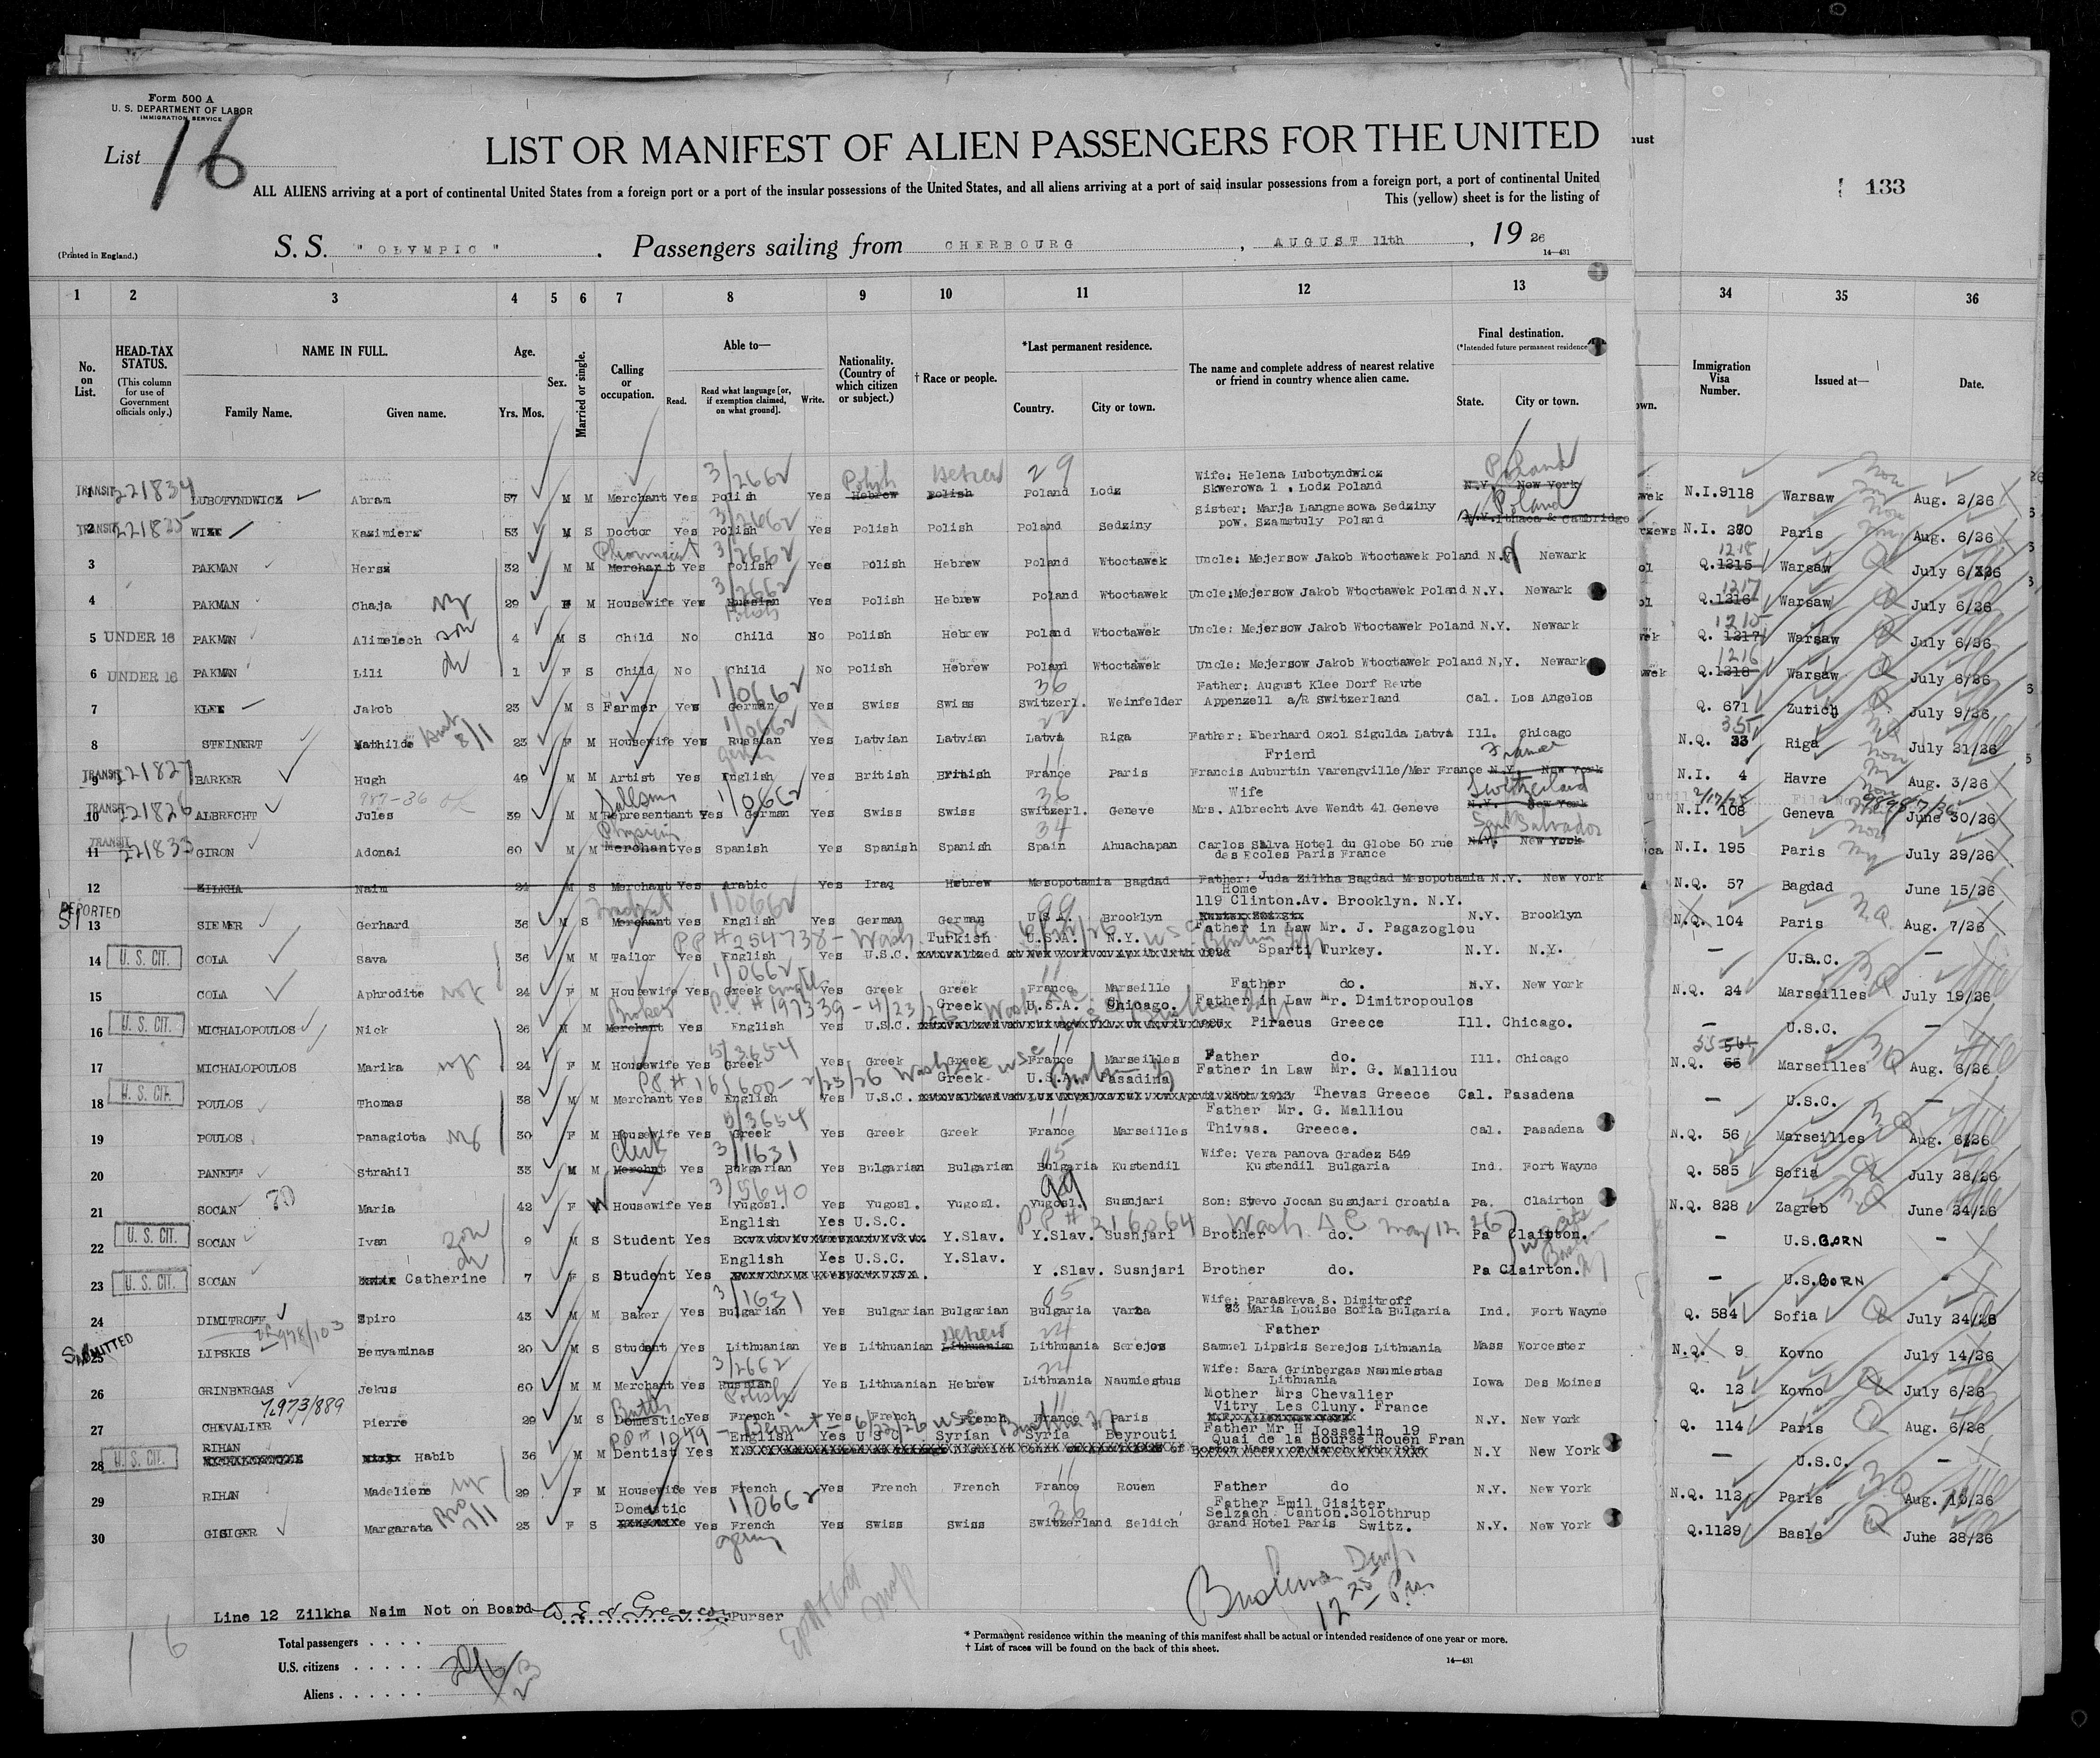 Form 500 A
U. S. DEPARTMENT OF LABOR
IMMIGRATION SERVICE
List 16
LIST OR MANIFEST OF ALIEN PASSENGERS FOR THE UNITED
ALL ALIENS arriving at a port of continental United States from a foreign port or a port of the insular possessions of the United States, and all aliens arriving at a port of said insular possessions from a foreign port, a port of continental United
This (yellow) sheet is for the listing of
133
(Printed in England.)
S. S. "OLYMPIC". Passengers sailing from CHERBOURG, AUGUST 11th, 1926
14-431
1 2 3 4 5 6 7 8 9 10 11 12 13 34 35 36
No. on List.
HEAD-TAX STATUS.
(This column for use of Government officials only.)
NAME IN FULL.
Family Name. Given name.
Age.
Yrs. Mos.
Sex.
Married or single.
Calling or occupation.
Able to—
Read. Read what language [or, if exemption claimed, on what ground]. Write.
Nationality. (Country of which citizen or subject.)
† Race or people.
*Last permanent residence.
Country. City or town.
The name and complete address of nearest relative or friend in country whence alien came.
Final destination.
(*Intended future permanent residence
State. City or town.
Immigration Visa Number.
Issued at—
Date.
3/2662 Polish Hebrew 29 Wife: Helena Lubotyndwicz Poland
TRANSIT 221834 LUBOTYNDWICZ Abram 57 M M Merchant Yes Polish Yes Hebrew Polish Poland Lodz Skwerowa 1, Lodz Poland N.Y. New York N.I.9118 Warsaw Aug. 2/26
3/2662 Sister: Marja Langnesowa Sedziny Poland
TRANSIT 2 221835 Kazimierz 53 M S Doctor Yes Polish Yes Polish Polish Poland Sedziny pow. Szamstuly Poland N.Y. Ithaca & Cambridge N.I. Paris Aug. 6/26
Pharmacist 3/2662 1218
3 PAKMAN Hersz 32 M M Merchant Yes Polish Yes Polish Hebrew Poland Wtoctawek Uncle: Mejersow Jakob Wtoctawek Poland N.Y. Newark Q.1215 Warsaw July 6/26
3/2662 1217
4 PAKMAN Chaja 29 F M Housewife Yes Russian Yes Polish Hebrew Poland Wtoctawek Uncle:Mejersow Jakob Wtoctawek Poland N.Y. Newark Q.1216 Warsaw July 6/26
Polish
son 1215
5 UNDER 16 PAKMAN Alimelech 4 M S Child No Child No Polish Hebrew Poland Wtoctawek Uncle: Mejersow Jakob Wtoctawek Poland N.Y. Newark Q. 1217 Warsaw July 6/26
1216
6 UNDER 16 PAKMAN Lili 1 F S Child No Child No Polish Hebrew Poland Wtoctawek Uncle: Mejersow Jakob Wtoctawek Poland N.Y. Newark Q.1218 Warsaw July 6/26
1/0662 36 Father: August Klee Dorf Reute
7 KLEE Jakob 23 M S Farmer Yes German Yes Swiss Swiss Switzerl. Weinfelder Appenzell a/R Switzerland Cal. Los Angelos Q. 671 Zurich July 9/26
1/0662 22 355
8 STEINERT Mathilde 23 F M Housewife Yes Russian Yes Latvian Latvian Latva Riga Father: Eberhard Ozol Sigulda Latva Ill. Chicago N.Q. 33 Riga July 21/26
11 Friend France
TRANSIT 9 221827 BARKER Hugh 49 M M Artist Yes English Yes British British France Paris Francis Auburtin Varengville/Mer France N.Y. New York N.I. 4 Havre Aug. 3/26
Salesman 1/0662 36 Wife Switzerland
TRANSIT 10 221826 ALBRECHT Jules 39 M M Representant Yes German Yes Swiss Swiss Switzerl. Geneve Mrs. Albrecht Ave Wendt 41 Geneve N.Y. New York N.I. 108 Geneva June 30/26
Physician 34 Salvador
TRANSIT 11 221833 GIRON Adonai 60 M M Merchant Yes Spanish Yes Spanish Spanish Spain Ahuachapan Carlos Salva Hotel du Globe 50 rue des Ecoles Paris France N.Y. New York N.I. 195 Paris July 29/26
12 ZILKHA Naim 24 M S Merchant Yes Arabic Yes Iraq Hebrew Mesopotamia Bagdad Father: Juda Zilkha Bagdad Mesopotamia N.Y. New York N.Q. 57 Bagdad June 15/26
1/0662 99 Home
119 Clinton.Av. Brooklyn. N.Y.
DEPORTED 13 SIEMER Gerhard 36 M S Merchant Yes English Yes German German U.S.A. Brooklyn N.Y. Brooklyn N.Q. 104 Paris Aug. 7/26
PP# 254738 - Wash. Turkish U.S.A. N.Y. Father in Law Mr. J. Pagazoglou
14 U. S. CIT. COLA Sava 36 M M Tailor Yes English Yes U.S.C. Sparti Turkey. N.Y. N.Y. — U.S.C. —
1/0662 11
15 COLA Aphrodite 24 F M Housewife Yes Greek Yes Greek Greek France Marseille Father do. N.Y. New York N.Q. 24 Marseilles July 19/26
Broker P.P. # 197339 - 4/23/26 Greek U.S.A. Chicago. Father in Law Mr. Dimitropoulos
16 U. S. CIT. MICHALOPOULOS Nick 26 M M Merchant Yes English Yes U.S.C. Piraeus Greece Ill. Chicago. — U.S.C. —
5/3654 11
17 MICHALOPOULOS Marika 24 F M Housewife Yes Greek Yes Greek Greek France Marseilles Father do. Ill. Chicago N.Q. Marseilles Aug. 6/26
PP# 165600 - 2/25/26 Wash DC USC Greek. U.S.A. Pasadina Father in Law Mr. G. Malliou
18 U. S. CIT. POULOS Thomas 38 M M Merchant Yes English Yes U.S.C. Thevas Greece Cal. Pasadena — U.S.C. —
5/3654 11 Father Mr. G. Malliou
19 POULOS Panagiota 30 F M Housewife Yes Greek Yes Greek Greek France Marseilles Thivas. Greece. Cal. Pasadena N.Q. 56 Marseilles Aug. 6/26
Clerk 3/1631 05 Wife: Vera Panova Gradez 549
20 PANEFF Strahil 33 M M Merchnt Yes Bukgarian Yes Bulgarian Bulgarian Bulgaria Kustendil Kustendil Bulgaria Ind. Fort Wayne Q. 585 Sofia July 28/26
3/5640 99
21 SOCAN Maria 42 F W Housewife Yes Yugosl. Yes Yugosl. Yugosl. Yugosl. Susnjari Son: Stevo Jocan Susnjari Croatia Pa. Clairton N.Q. 828 Zagreb June 24/26
son English Yes U.S.C. PP# 316064 Wash. D C May 12 26
22 U. S. CIT. SOCAN Ivan 9 M S Student Yes Y.Slav. Y.Slav. Sushjari Brother do. Pa Clairton. — U.S.BORN —
English Yes U.S.C. Y.Slav.
23 U. S. CIT. SOCAN Catherine 7 F S Student Yes Y .Slav. Susnjari Brother do. Pa Clairton. — U.S.BORN —
3/1631 05 Wife: Paraskeva S. Dimitroff
24 DIMITROFF Spiro 43 M M Baker Yes Bulgarian Yes Bulgarian Bulgarian Bulgaria Varna 83 Maria Louise Sofia Bulgaria Ind. Fort Wayne Q. 584 Sofia July 24/26
Hebrew 24 Father
ADMITTED 25 LIPSKIS Benyaminas 20 M S Student Yes Lithuanian Yes Lithuanian Lithuanian Lithuania Serejos Samuel Lipskis Serejos Lithuania Mass Worcester N.Q. 9 Kovno July 14/26
3/2662 24 Wife: Sara Grinbergas Naumiestas
26 GRINBERGAS Jekus 60 M M Merchant Yes Russian Yes Lithuanian Hebrew Lithuania Naumiestus Lithuania Iowa Des Moines Q. 12 Kovno July 6/26
7,973/889 Butler Polish 11 Mother Mrs Chevalier
27 CHEVALIER Pierre 29 M S Domestic Yes French Yes French French France Paris Vitry Les Cluny. France N.Y. New York Q. 114 Paris Aug. 6/26
PP# 1049 - Beirut - 6/22/26 USC
RIHAN English Yes U S C. Syrian Syria Beyrouti Father Mr H Josselin 19
Quai de la Bourse Rouen Fran
28 U. S. CIT. Habib 36 M M Dentist Yes N.Y New York — U.S.C. —
11
29 RIHAN Madeliene 29 F M Housewife Yes French Yes French French France Rouen Father do N.Y. New York N.Q. 113 Paris Aug. 10/26
Domestic 1/0662 36 Father Emil Gisiter
Selzach Canton.Solothrup
30 GISIGER Margarata 23 F S Yes French Yes Swiss Swiss Switzerland Seldich Grand Hotel Paris Switz. N.Y. New York Q.1129 Basle June 28/26
Line 12 Zilkha Naim Not on Board Purser
16
Total passengers
U.S. citizens
Aliens
* Permanent residence within the meaning of this manifest shall be actual or intended residence of one year or more.
† List of races will be found on the back of this sheet.
14-431